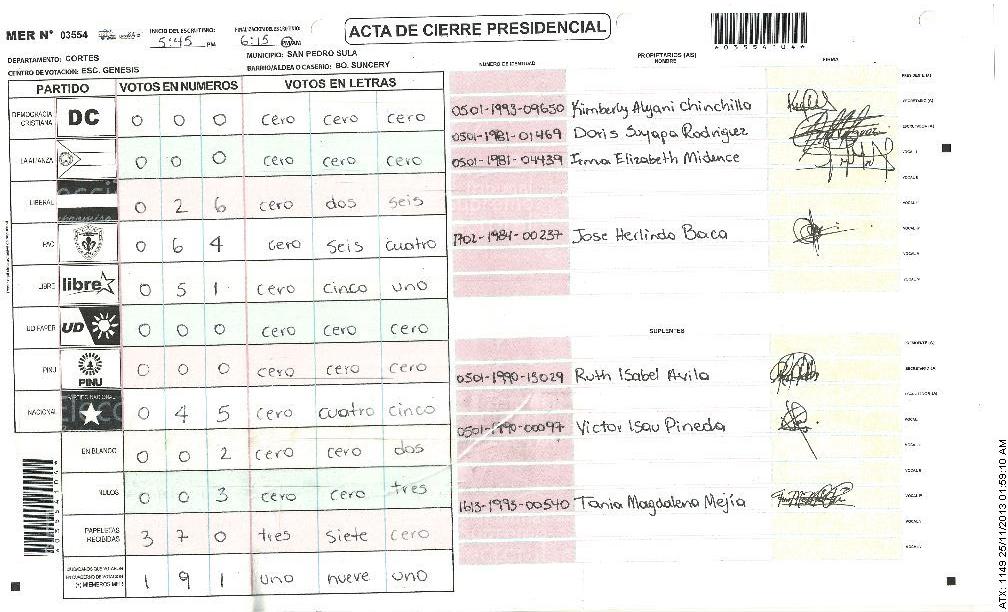 MER N° 03554
INICIO DEL ESCRUTINIO: 5:45 PM
FINALIZACION DEL ESCRUTINIO: 6:15 PM/AM
ACTA DE CIERRE PRESIDENCIAL
DEPARTAMENTO: CORTES
MUNICIPIO: SAN PEDRO SULA
CENTRO DE VOTACION: ESC. GENESIS
BARRIO/ALDEA O CASERIO: BO. SUNCERY
PARTIDO VOTOS EN NUMEROS VOTOS EN LETRAS
DEMOCRACIA CRISTIANA DC 0 0 0 cero cero cero
LA ALIANZA 0 0 0 cero cero cero
LIBERAL 0 2 6 cero dos seis
PAC 0 6 4 cero seis cuatro
LIBRE libre 0 5 1 cero cinco uno
UD FAPER UD 0 0 0 cero cero cero
PINU PINU 0 0 0 cero cero cero
NACIONAL 0 4 5 cero cuatro cinco
EN BLANCO 0 0 2 cero cero dos
NULOS 0 0 3 cero cero tres
PAPELETAS RECIBIDAS 3 7 0 tres siete cero
1 9 1 uno nueve uno
NUMERO DE IDENTIDAD
PROPIETARIOS (AS)
NOMBRE
FIRMA
0501-1993-09650 Kimberly Alyani Chinchilla
0501-1981-01469 Doris Suyapa Rodriguez
0501-1981-04439 Irma Elizabeth Midence
1702-1984-00237 Jose Herlindo Baca
SUPLENTES
0501-1990-13029 Ruth Isabel Avila
0501-1990-00097 Victor Isau Pineda
1613-1993-00540 Tania Magdalena Mejía
ATX: 1149 25/11/2013 01:59:10 AM